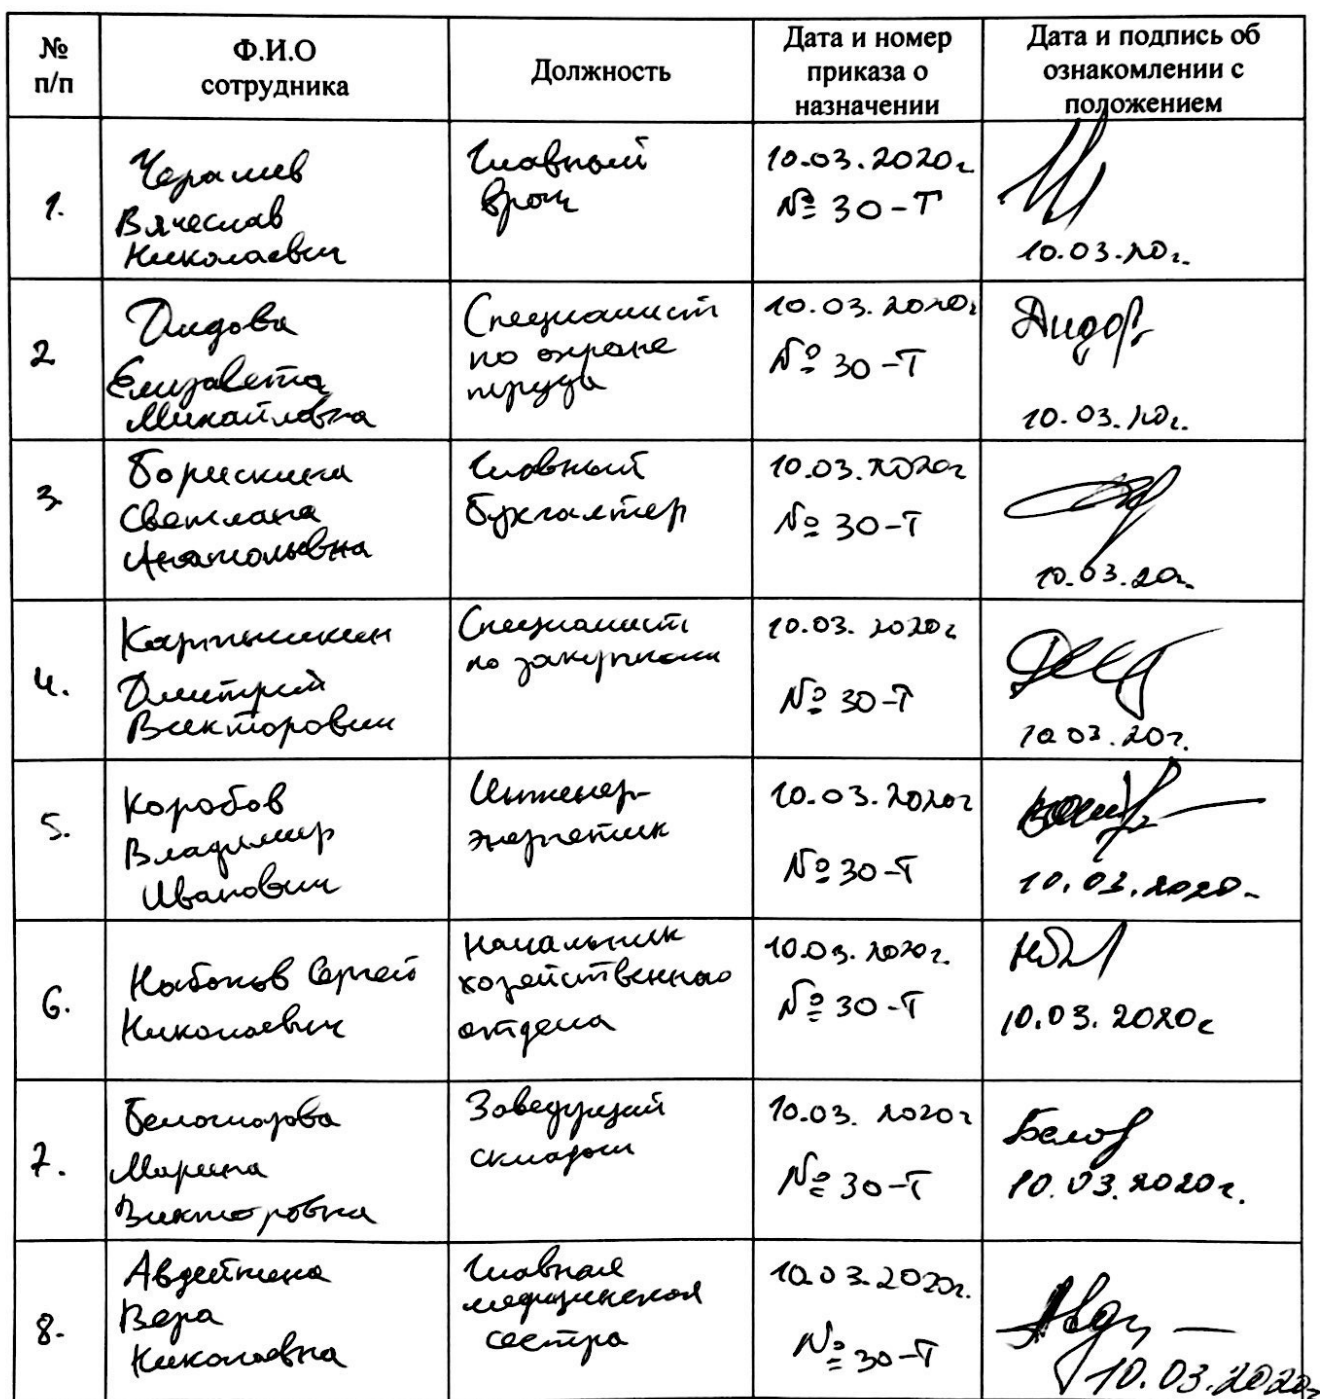 № п/п
Ф.И.О сотрудника
Должность
Дата и номер приказа о назначении
Дата и подпись об ознакомлении с положением
1.
Вячеслав
Николаевич
Главный
врач
10.03.2020г.
№ 30-Т
10.03.20г.
2
Дидова
Елизавета
Михайловна
Специалист
по охране
труда
10.03.2020г
№ 30-Т
10.03.20г.
3.
Борискина
Светлана
Анатольевна
Главный
бухгалтер
10.03.2020г
№ 30-Т
10.03.20г.
4.
Дмитрий
Викторович
Специалист
по закупкам
10.03.2020г
№ 30-Т
10.03.20г.
5.
Коробов
Владимир
Иванович
Инженер-
энергетик
10.03.2020г
№ 30-Т
10.03.2020г.
6.
Набоков Сергей
Николаевич
Начальник
хозяйственного
отдела
10.03.2020г.
№ 30-Т
10.03.2020г
7.
Марина
Викторовна
Заведующий
складом
10.03.2020г
№ 30-Т
10.03.2020г.
8.
Вера
Николаевна
Главная
медицинская
сестра
10.03.2020г.
№ 30-Т
10.03.2020г